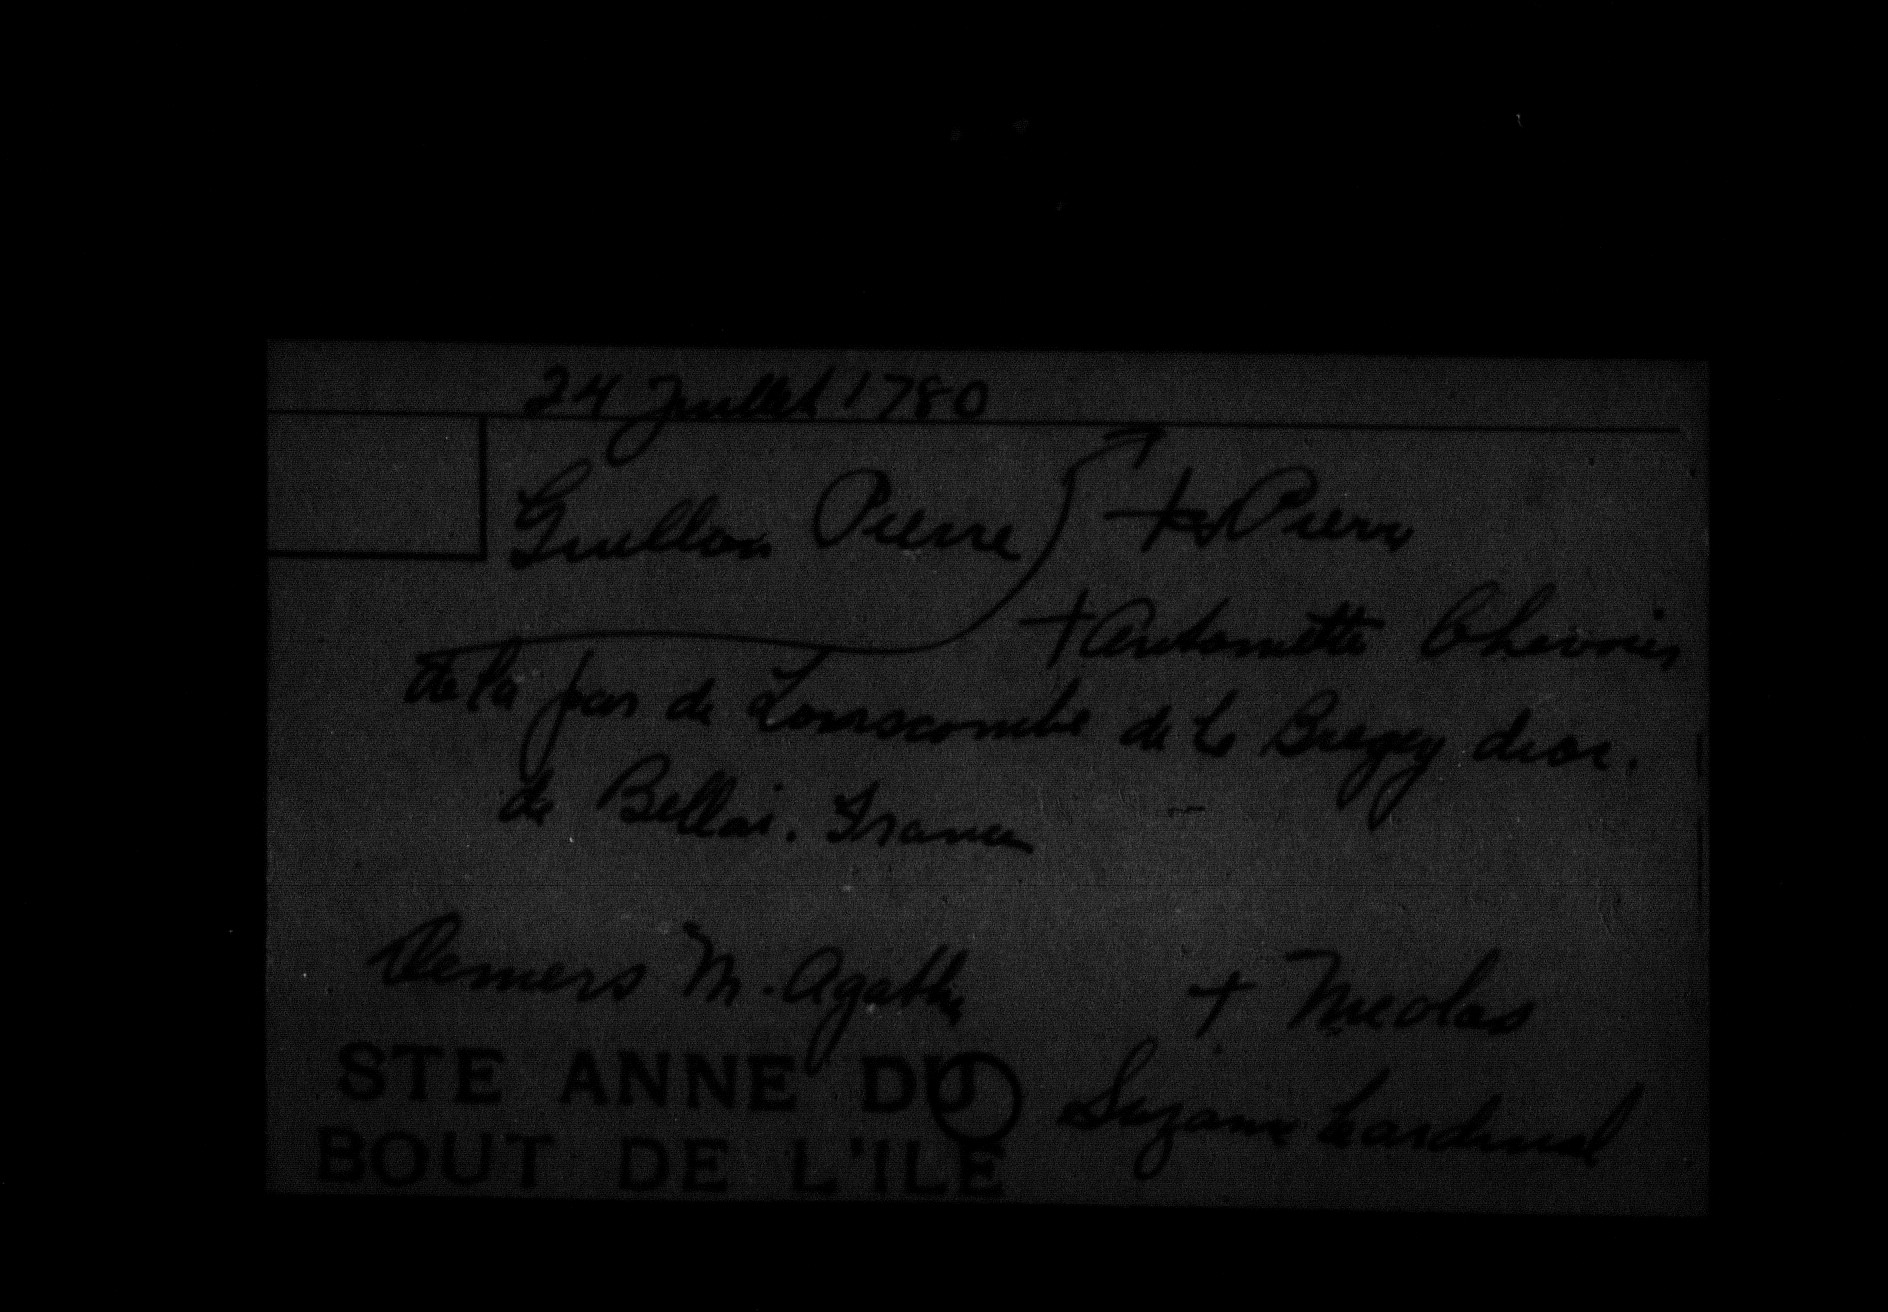 24 Juillet 1780
Guillon Pierre + Pierre
+ Antoinette Chevrier
de la par de de la dioc.
de Bellai. France
Demers M. Agathe + Nicolas
STE ANNE DU Suzane Cardinal
BOUT DE L'ILE